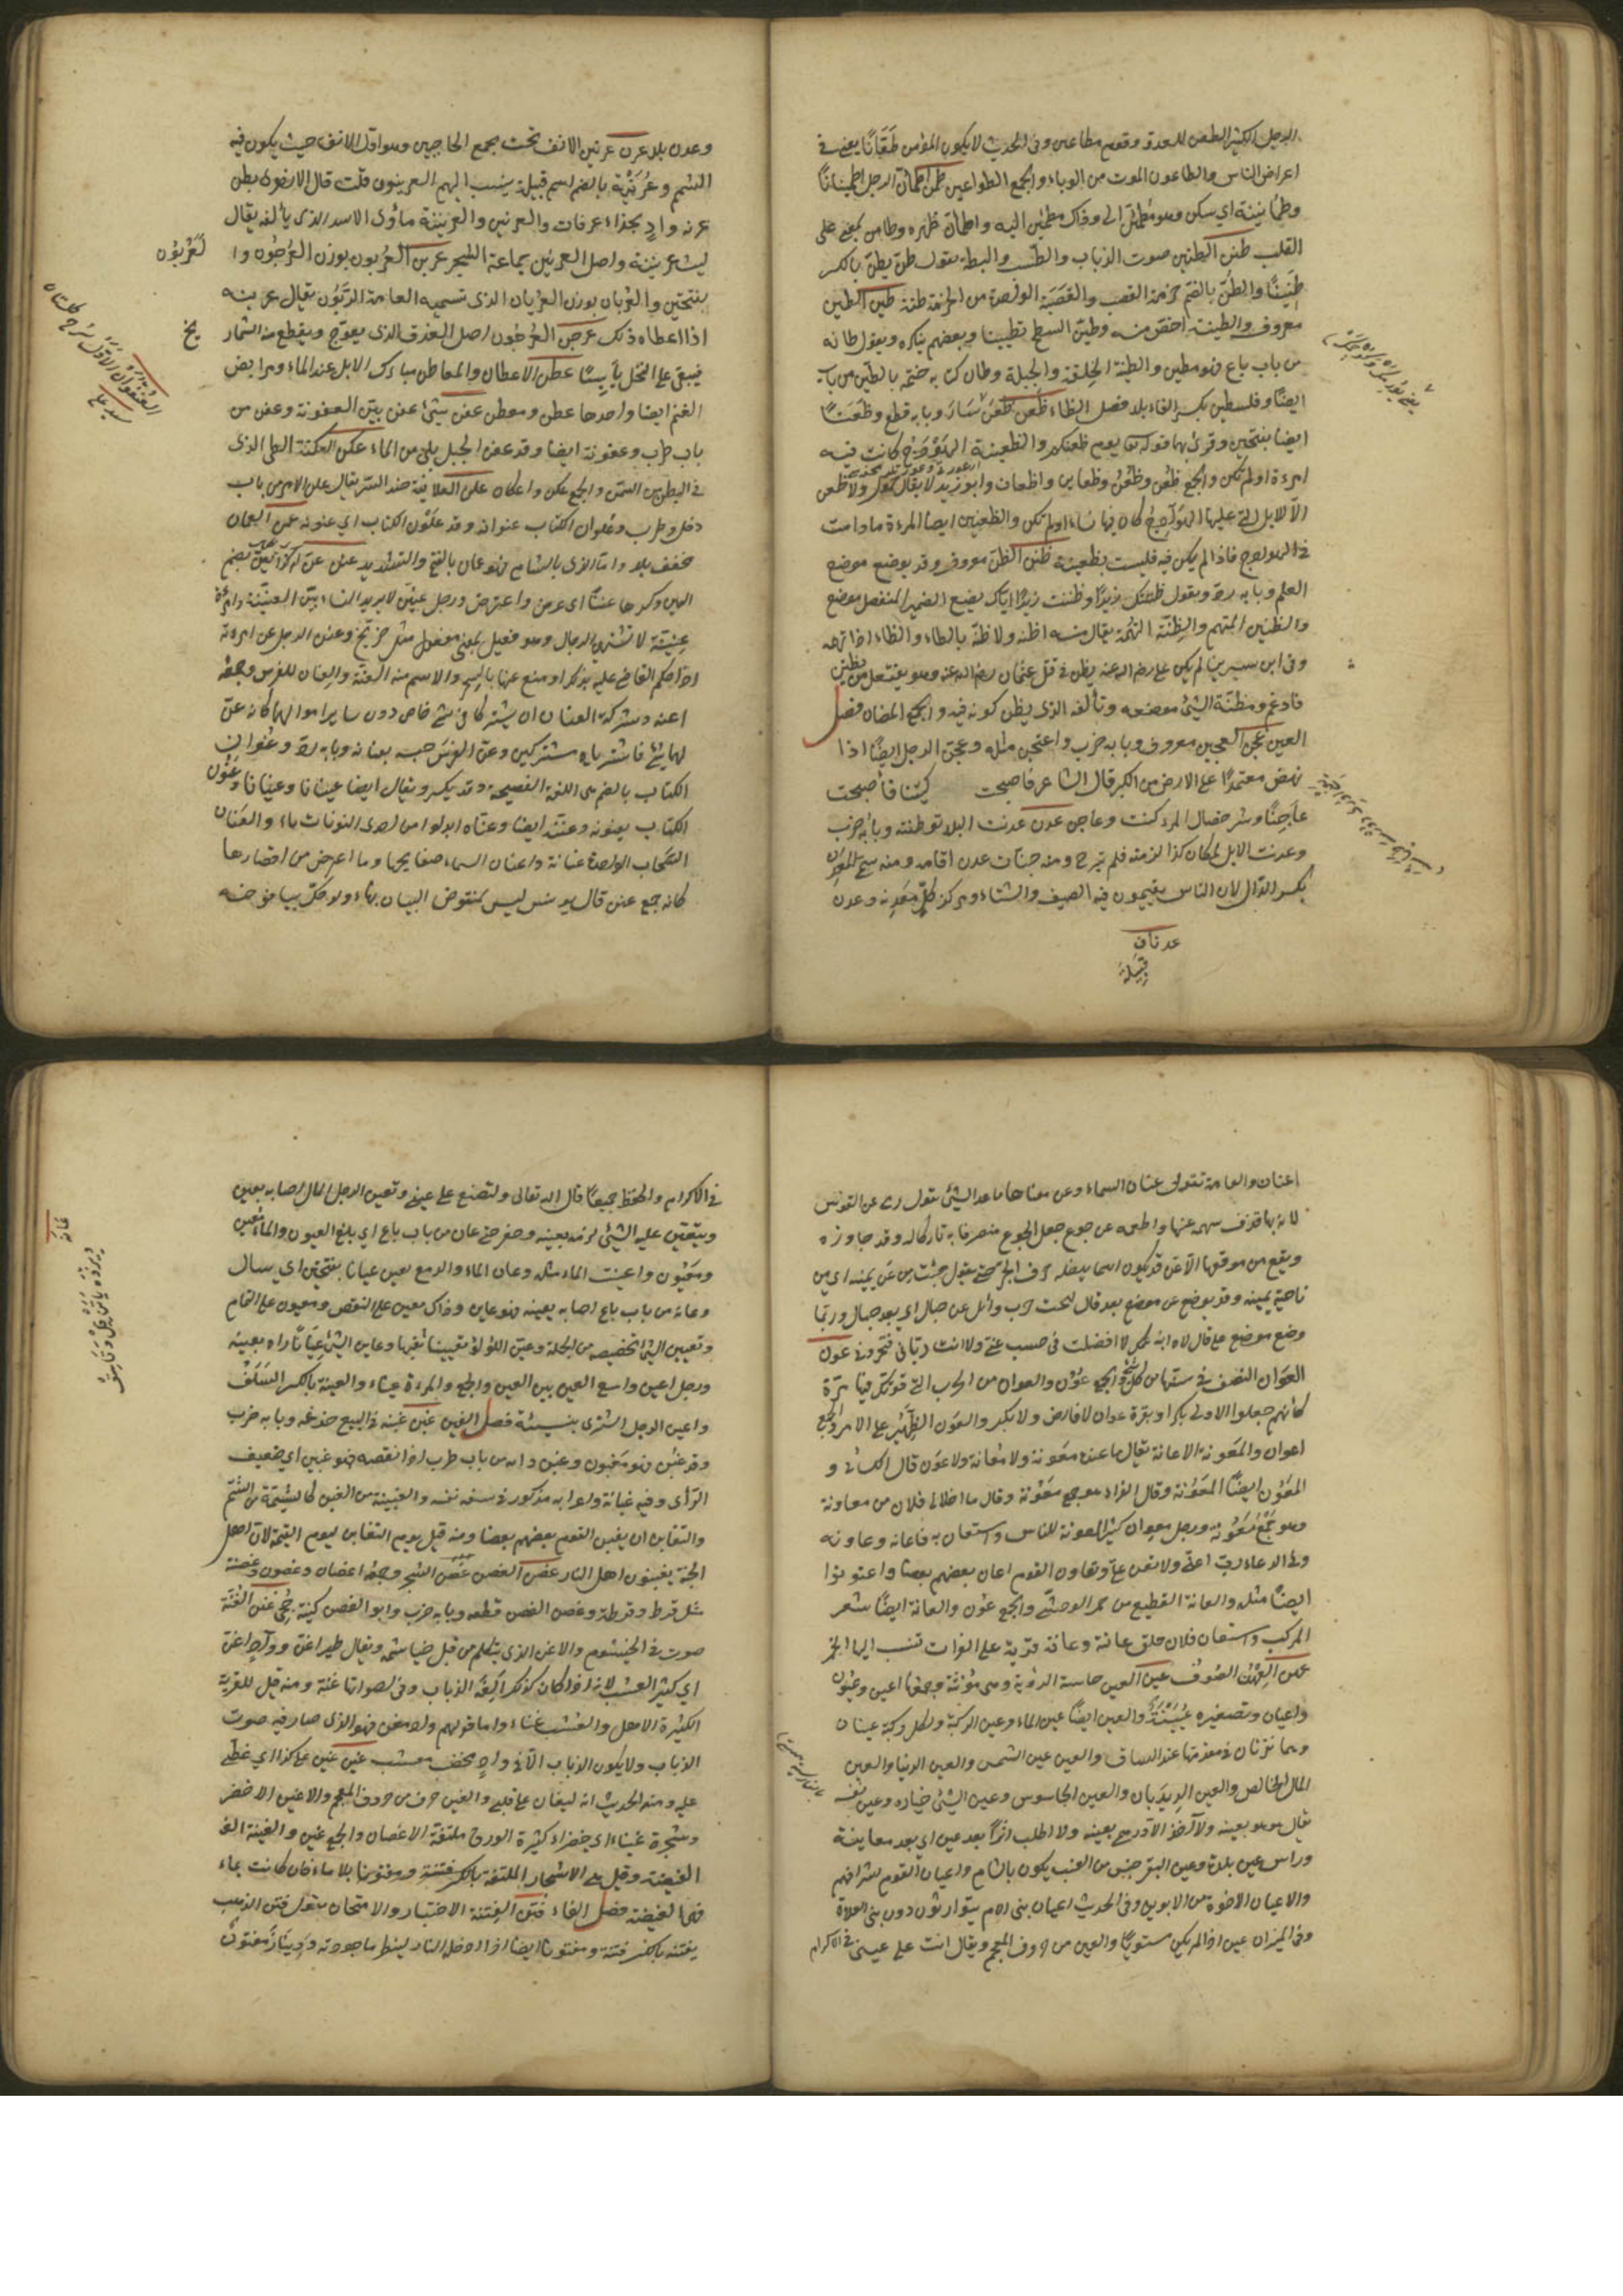 الرجل الكثير الطعن للعدو وقوم مطاعين وفي الحديث لا يكون المؤمن طعانا يعني في
اعراض الناس والطاعون الموت من الوباء والجمع الطواعين طمن اطمأن الرجل اطمئنانا
وطمأنينة اي سكن وهو مطمئن الى وذاك مطمئن اليه واطمأن ظهره وطامن بمعنى على
القلب طنن الطنين صوت الذباب والطست والبطة تقول طن يطن بالكسر
طنينا والطن بالضم حزمة القصب والقصبة الواحدة من الحزمة طنة طين الطين
معروف والطينة اخص منه وطين السطح تطيينا وبعضهم ينكره ويقول طانه
من باب باع فهو مطين والطينة الخلقة والجبلة وطان كتابه ختمه بالطين من باب
ايضا وفلسطين بكسر الفاء بلد فصل الظاء ظعن ظعن سار وبابه قطع وظعنا
ايضا بفتحتين وقرئ بهما قوله تعا يوم ظعنكم والظعينة الهودج كانت فيه
امرءة او لم تكن والجمع ظعن وظعن وظعاين واظعان وابو زيد لا يقال حمول ولا ظعن
الا للابل التي عليها الهوادج كان فيها نساء او لم تكن والظعينة ايضا المرءة ما دامت
في الهودج فاذا لم يكن فيه فليست بظعينة ظنن الظن معروف وقد يوضع موضع
العلم وبابه رد وتقول ظننتك زيدا وظننت زيدا اياك يضع الضمير المنفصل موضع
والظنين المتهم والظنة التهمة يقال منه اظنه واظنه بالطاء والظاء اذا اتهمه
وفي ابن سيرين لم يكن علي رضه الله عنه يظن في قتل عثمان رضه الله عنه وهو يفتعل من يظتن
فادغم ومظنة الشئ موضعه ومألفه الذي يظن كونه فيه والجمع المظان فصل
العين عجن العجين معروف وبابه ضرب واعتجن مثله وعجن الرجل ايضا اذا
نهض معتمدا على الارض من الكبر قال الشاعر فاصبحت كنتيا فاصبحت
عاجنا وشر خصال المرء كنت وعاجن عدن عدنت البلد توطنته وبابه ضرب
وعدنت الابل بمكان كذا لزمته فلم تبرح ومنه جنات عدن اقامة ومنه سمي المعدن
بكسر الدال لان الناس يقيمون فيه الصيف والشتاء ومركز كل معدنه وعدن
عدنان
قبيلة
وعدن بلد عرن عرنين الانف تحت مجمع الحاجبين وهو اول الانف حيث يكون فيه
الشمم وعرينة بالضم اسم قبيلة ينسب اليهم العرنيون قلت قال الازهري بطن
عرنة واد بحذاء عرفات والعرين والعرينة مأوى الاسد الذي يألفه يقال
ليث عرينة واصل العرين جماعة الشجر عربن العربون بوزن العرجون وا
لعربون
بفتحتين والعربان بوزن القربان الذي تسميه العامة الربون يقال عربنه
اذا اعطاه ذلك عرجن العرجون اصل العذق الذي يعوج ويقطع منه الشمار
يخ
فيبقى على النخل يابسا عطن الاعطان والمعاطن مبارك الابل عند الماء ومرابض
الغنم ايضا واحدها عطن ومعطن عفن شئ عفن بين العفونة وعفن من
باب طرب وعفونة ايضا وقد عفن الجبل بلي من الماء عكن العكنة الطي الذي
في البطن من السمن والجمع عكن واعكان علن العلانية ضد السر يقال علن الامر من باب
دخل وطرب وعلوان الكتاب عنوانه وقد علون الكتاب اي عنونه عمن العمان
مخفف بلد واما الذي بالشام فهو عمان بالفتح والتشديد عنن عن له كذا يعن بضم
العين وكسرها عننا اي عرض واعترض ورجل عنين لا يريد النساء بين العنينة وامرءة
عنينة لا تشتهي الرجال وهو فعيل بمعنى مفعول مثل خريج وعنن الرجل عن امرءته
اذا حكم القاضي عليه بذلك او منع عنها بالسحر والاسم منه العنة والعنان للفرس وجمعه
اعنة وشركة العنان ان يشتركا في شئ خاص دون ساير اموالهما كانه عن
لهما شئ فاشترياه مشتركين وعن الفرس حبسه بعنانه وبابه رد وعنوان
الكتاب بالضم هي اللغة الفصيحة وقد يكسر ويقال ايضا عنيان وعنيان وعنون
الكتاب يعنونه وعننه ايضا وعناه ابدلوا من احدى النونات ياء والعنان
السحاب الواحدة عنانة واعنان السماء صفايحها وما اعترض من اقطارها
كانه جمع عنن قال يونس ليس لمنقوض البيان بهاء ولو حك بيافوخه
اعنان والعامة تقول عنان السماء وعن معناها ما عدا الشئ تقول رمى عن القوس
لانه بها قذف سهمه عنها واطعمه عن جوع جعل الجوع منصرفا به تاركا له وقد جاوزه
ويقع من موقعها الا عن قد يكون اسما يدخله حرف الجر تقول جئت من عن يمينه اي من
ناحية يمينه وقد يوضع عن موضع بعد قال لقحت حرب وائل عن حيال اي بعد حيال وربما
وضع موضع على قال لاه ابن عمك لا افضلت في حسب عني ولا انت دياني فتخزوني عون
العوان النصف في سنها من كل شئ والجمع عون والعوان من الحرب التي قوتل فيها مرة
كانهم جعلوا الاولى بكرا وبقرة عوان لا فارض ولا بكر والعون الظهير على الامر والجمع
اعوان والمعونة الاعانة يقال ما عنده معونة ولا معانة ولا عون قال الكسائي و
المعون ايضا المعونة وقال الفراء هو جمع معونة وقال ما اخلاني فلان من معاونة
وهو جمع معونة ورجل معوان كثير المعونة للناس واستعان به فاعانه وعاونه
وفي الدعاء رب اعني ولا تعن علي وتعاون القوم اعان بعضهم بعضا واعتونوا
ايضا مثله والعانة القطيع من حمر الوحش والجمع عون والعانة ايضا شعر
المركب واستعان فلان حلق عانته وعانة قرية على الفرات تنسب اليها الخمر
عهن العهن الصوف عين العين حاسة الرؤية وهي مؤنثة وجمعها اعين وعيون
واعيان وتصغيره عيينة والعين ايضا عين الماء وعين الركبة ولكل ركبة عينان
وهما نقرتان في مقدمها عند الساق والعين عين الشمس والعين الدينار والعين
المال الخالص والعين الديدبان والعين الجاسوس وعين الشئ خياره وعين نفسه
يقال هو هو بعينه ولا آخذ الا درهمي بعينه ولا اطلب اثرا بعد عين اي بعد معاينة
وراس عين بلدة وعين البقر جنس من العنب يكون بالشام واعيان القوم اشرافهم
والاعيان الاخوة من الابوين وفي الحديث اعيان بني الام يتوارثون دون بني العلات
وفي الميزان عين اذا لم يكن مستويا والعين من حروف المعجم ويقال انت على عيني في الاكرام
في الاكرام والحفظ جميعا قال الله تعالى ولتصنع على عيني وتعين الرجل المال اصابه بعين
وتعين عليه الشئ لزمه بعينه وحفر حتى عان من باب باع اي بلغ العيون والماء معين
ومعيون واعينت الماء مثله وعان الماء والدمع يعين عينانا بفتحتين اي سال
وعانه من باب باع اصابه بعينه فهو عاين وذاك معين على النقص ومعيون على التمام
وتعيين الشئ تخصيصه من الجملة وعين اللؤلؤ تعيينا ثقبها وعاين الشئ عيانا راه بعينه
ورجل اعين واسع العين بين العين والجمع والمرءة عيناء والعينة بالكسر السلف
واعين الرجل اشترى بنسيئة فصل الغين غبن غبنه في البيع خدعه وبابه ضرب
وقد غبن فهو مغبون وغبن رايه من باب طرب اذا نقصه فهو غبين اي ضعيف
الرأى وفيه غبانة واعرابه مذكور في سفه نفسه والغبينة من الغبن كالشتيمة من الشتم
والتغابن ان يغبن القوم بعضهم بعضا ومنه قيل يوم التغابن ليوم القيمة لان اهل
الجنة يغبنون اهل النار غصن الغصن غصن الشجر وجمعه اغصان وغصون وغصنة
مثل قرط وقرطة وغصن الغصن قطعه وبابه ضرب وابو الغصن كنية جحى غنن الغنة
صوت في الخيشوم والاغن الذي يتكلم من قبل خياشمه ويقال طير اغن وواد اغن
اي كثير العشب لانه اذا كان كذلك الفه الذباب وفي اصواتها غنة ومنه قيل للقرية
الكثيرة الاهل والعشب غناء واما قولهم واد مغن فهو الذي صار فيه صوت
الذباب ولا يكون الذباب الا في واد مخصب معشب غين غين على كذا اي غطي
عليه ومنه الحديث انه ليغان على قلبي والغين حرف من حروف المعجم والاغين الاخضر
وشجرة غيناء اي خضراء كثيرة الورق ملتفة الاغصان والجمع غين والغينة
الغيضة وقيل هي الاشجار الملتفة بلا ماء فان كانت بماء
فهي الغيضة فصل الفاء فتن الفتنة الاختبار والامتحان يقول فتن الذهب
يفتنه بالكسر فتنة ومفتونا ايضا اذا ادخله النار لينظر ما جودته ودينار مفتون